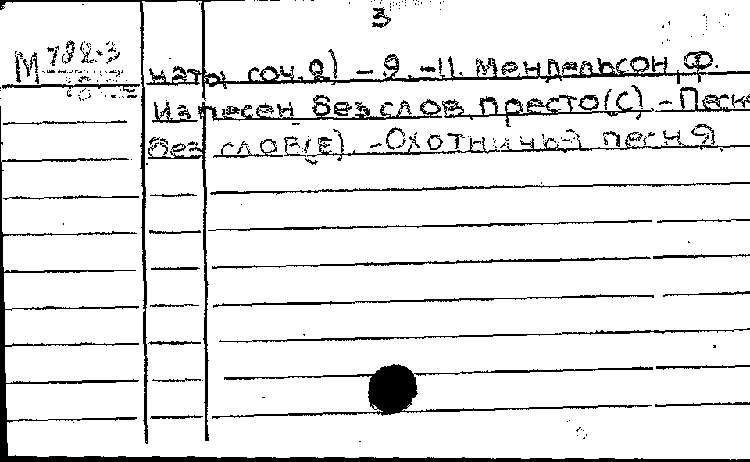 3
М 782.3
ната, соч. 2) - 9. -11. Мендельсон, Ф.
Из песен без слов. престо(С) - Песня
без слов(Е). -Охотничья песня